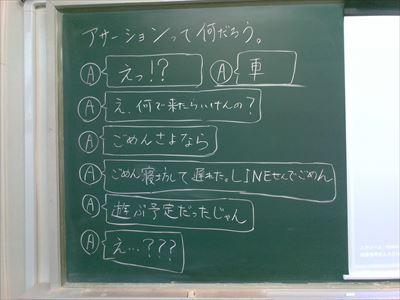 アサーションって何だろう。
Ⓐ えっ!? Ⓐ 車
Ⓐ え、何で来たらいけんの?
Ⓐ ごめんさよなら
Ⓐ ごめん寝坊して遅れた。LINEせんでごめん
Ⓐ 遊ぶ予定だったじゃん
Ⓐ え…???